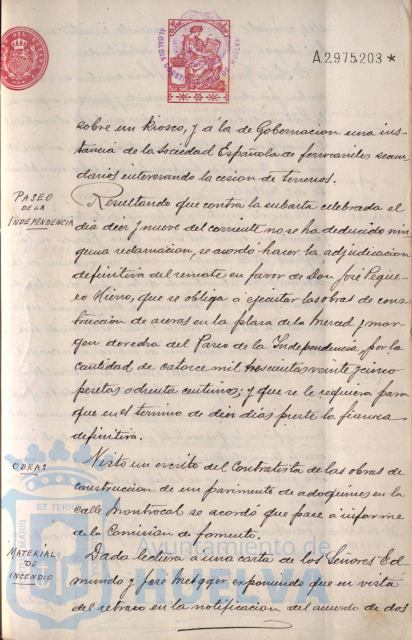 A.2975203 *
sobre un Kiosco, y á la de Gobernacion una ins-
tancia de la Sociedad Española de ferrocarriles secun-
darios interesando la cesion de terrenos.
PASEO
DE LA
INDEPENDENCIA
Resultando que contra la subasta celebrada el
dia diez y nueve del corriente no se ha deducido nin-
guna reclamacion, se acordó hacer la adjudicacion
definitiva del remate en favor de Don José Regue-
ro Hierro, que se obliga a ejecutar las obras de cons-
trucción de aceras en la plaza de la Merced y mar-
gen derecha del Paseo de la Independencia por la
cantidad de catorce mil trescientas veinte y cinco
pesetas ochenta centimos; y que se le requiera para
que en el termino de diez dias preste la fianza
definitiva.
OBRAS
Visto un escrito del Contratista de las obras de
construccion de un pavimento de adoquines en la
calle Montrocal se acordó que pase a informe
de la Comision de fomento.
MATERIAL
DE
INCENDIO
Dada lectura a una carta de los Señores Ed-
mundo y José Metzger exponiendo que en vista
del retraso en la notificacion del acuerdo de dos
Ayuntamiento de
HUELVA